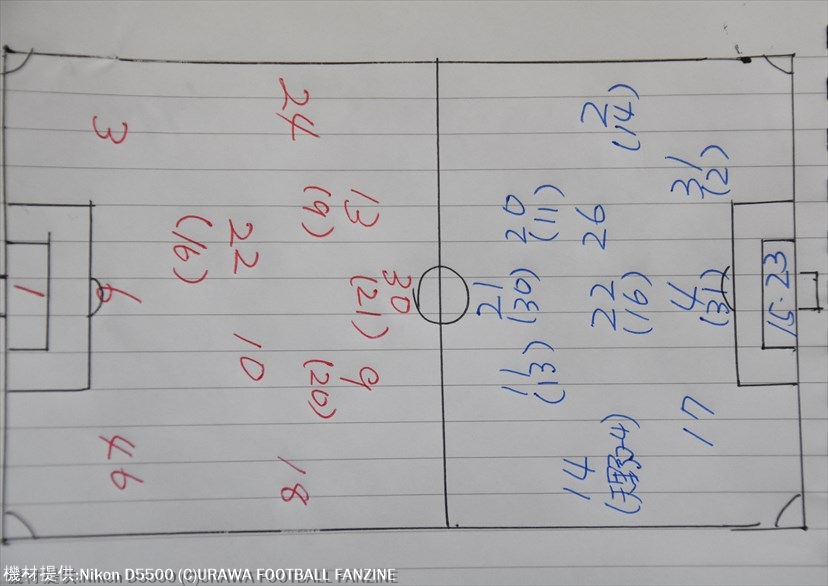 1
3
6
46
24
22
(16)
10
18
13
(9)
30
(21)
9
(20)
20
(11)
21
(30)
11
(13)
2
(14)
26
22
(16)
14
(天野→4)
31
(2)
4
(31)
17
15・23
機材提供:Nikon D5500 (C)URAWA FOOTBALL FANZINE